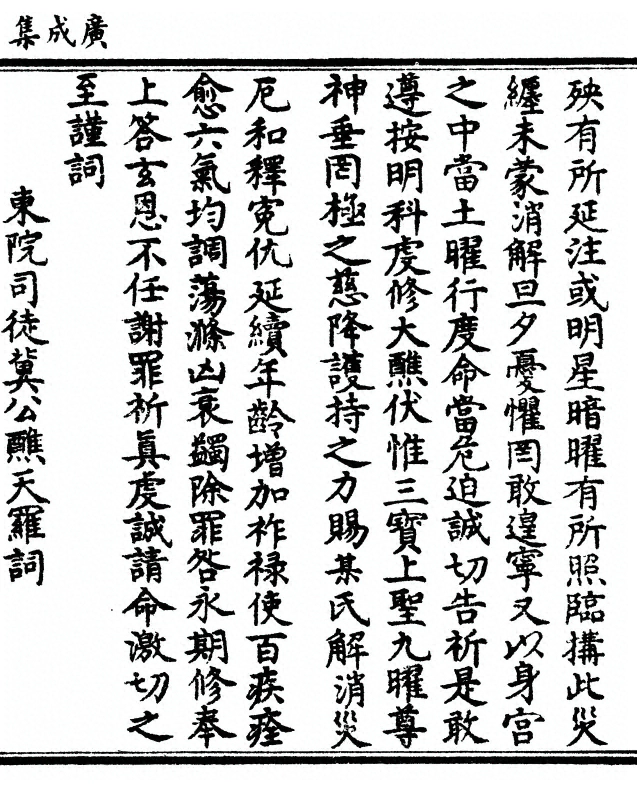 廣成集
殃有所延注或明星暗曜有所照臨搆此災
纏未蒙消解旦夕憂懼罔敢遑寧又以身宮
之中當土曜行度命當危迫誠切告祈是敢
遵按明科虔修大醮伏惟三寶上聖九曜尊
神垂罔極之慈降護持之力賜某氏解消災
厄和釋寃仇延續年齡增加祚禄使百疾痊
愈六氣均調蕩滌凶衰蠲除罪咎永期修奉
上答玄恩不任謝罪祈真虔誠請命激切之
至謹詞
東院司徒冀公醮天羅詞